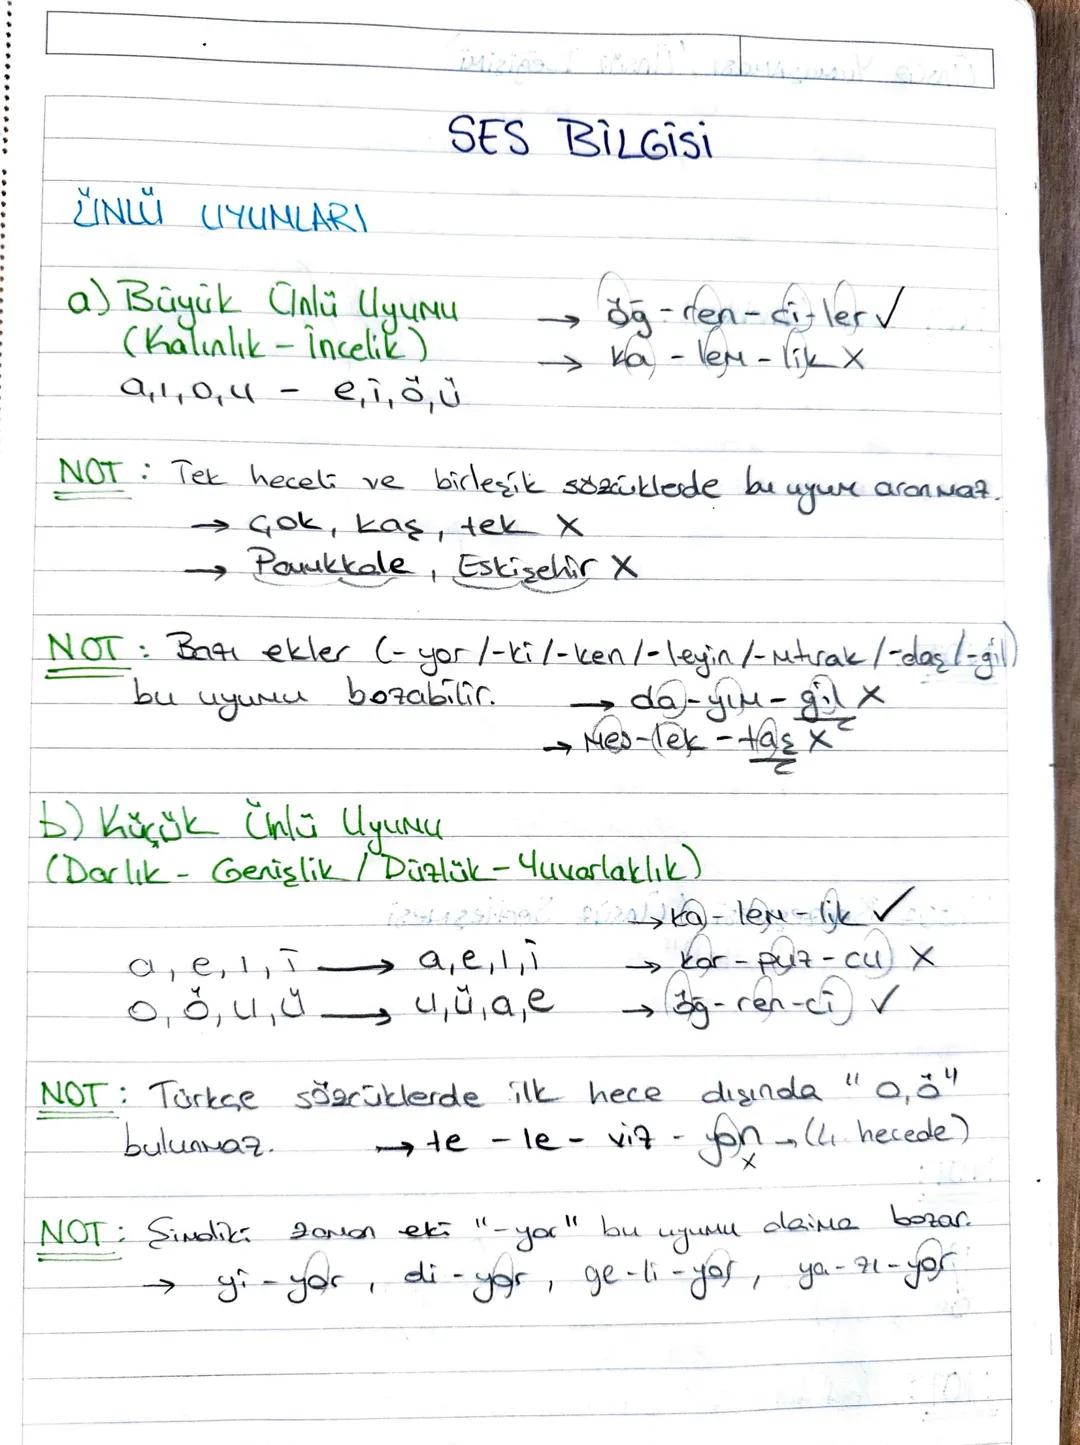 SES BİLGİSİ
ÜNLÜ UYUMLARI
a) Büyük Ünlü Uyumu → öğ - ren - ci - ler ✓
(Kalınlık - İncelik) → ka - lem - lik X
a, ı, o, u - e, i, ö, ü
NOT : Tek heceli ve birleşik sözcüklerde bu uyum aranmaz.
→ Çok, kaş, tek X
→ Pamukkale, Eskişehir X
NOT : Bazı ekler (-yor /-ki /-ken /-leyin /-mtırak /-daş /-gil)
bu uyumu bozabilir. → da - yım - gil X
→ Mes - lek - taş X
b) Küçük Ünlü Uyumu
(Darlık - Genişlik / Düzlük - Yuvarlaklık)
→ ka - lem - lik ✓
a, e, ı, i → a, e, ı, i → kar - puz - cu X
o, ö, u, ü → u, ü, a, e → öğ - ren - ci ✓
NOT : Türkçe sözcüklerde ilk hece dışında "o, ö"
bulunmaz. → te - le - viz - yon → (4. hecede)
x
NOT : Şimdiki zaman eki "-yor" bu uyumu daima bozar.
→ yi - yor, di - yor, ge - li - yor, ya - zı - yor